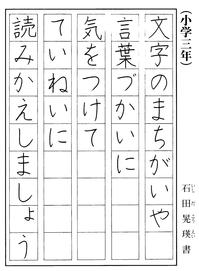 （小学三年）
文字のまちがいや
言葉づかいに
気をつけて
ていねいに
読みかえしましょう
石田晃瑛書